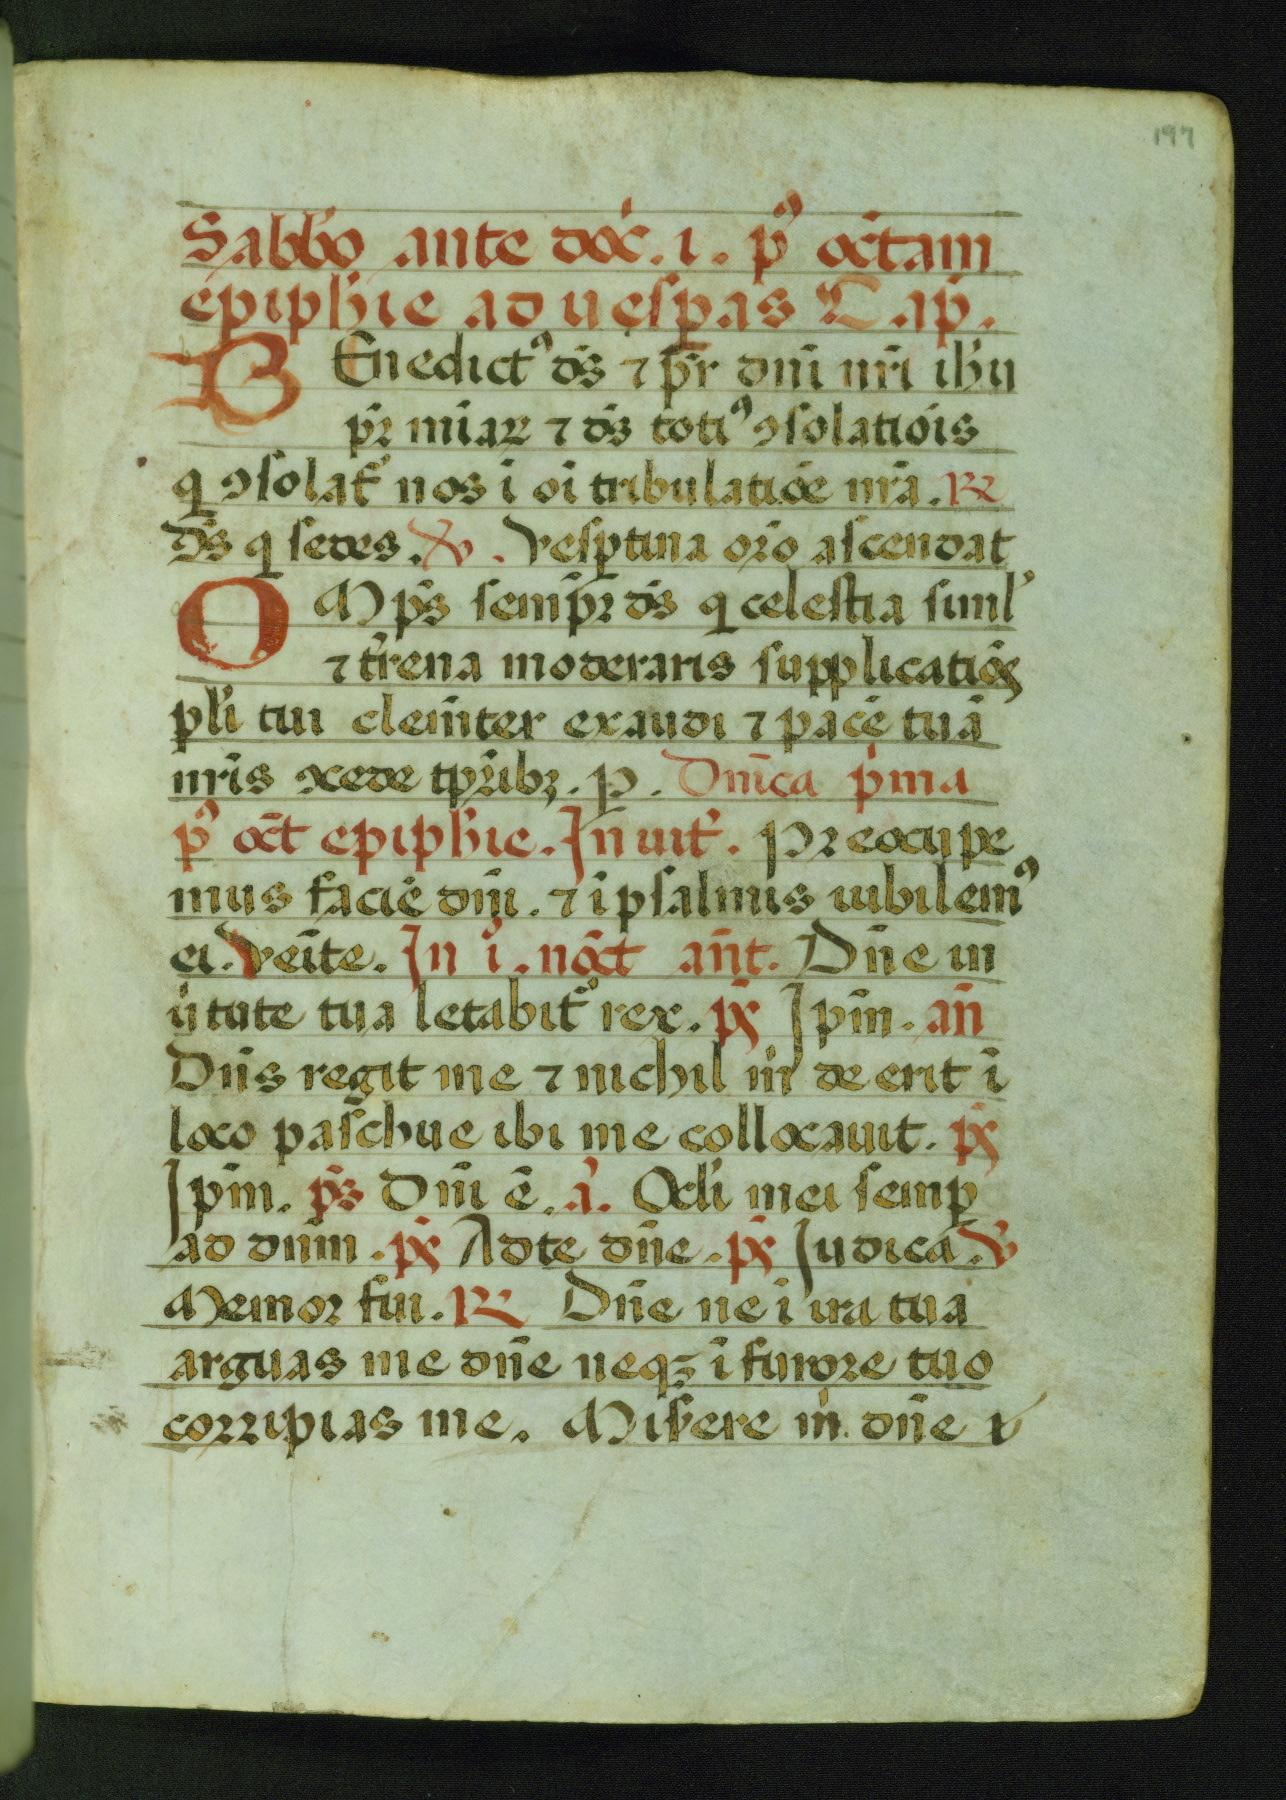 197
Sabbo ante doc̄. i. pꝰ oc̄tam
epiphīe ad uesꝑas Cap̄.
BEnedictꝰ ds̄ ⁊ pr̄ dn̄i nr̄i ih̄u
pr̄ mīaꝝ ⁊ ds̄ totiꝰ ꝯsolatiōis
q̄ ꝯsolat᷑ nos ī oī tribulatiōe nr̄a. ℞
ds̄ q̄ sedes. ℣. Vesꝑtina or̄o ascendat
OMps̄ semp̄r ds̄ q̄ celestia siml᷑
⁊ tr̄rena moderaris supplicatiōes
pl̄i tui clem̄ter exaudi ⁊ pacē tuā
nr̄is ꝯcede tp̄ribꝫ. p. Dn̄ica p̄ma
pꝰ oc̄t epiphīe. Inuit᷑. Preocupe
mus faciē dn̄i. ⁊ ī psalmis iubilemꝰ
ei. Veīte. In i. noc̄t an̄t. Dn̄e in
ūtute tua letabit᷑ rex. pꝭ Ipm̄. an̄
Dn̄s regit me ⁊ nichil m̄ deerit ī
loco paschue ibi me collocauit. pꝭ
Ipm̄. ps̄ Dn̄i ē. a̾. Ocl̄i mei semꝑ
ad dn̄m. pꝭ Ad te dn̄e. pꝭ Judica. ℣
Memor fui. ℞ Dn̄e ne ī ira tua
arguas me dn̄e neqꝫ ī furore tuo
corripias me. Mis̄ere m̄. dn̄e